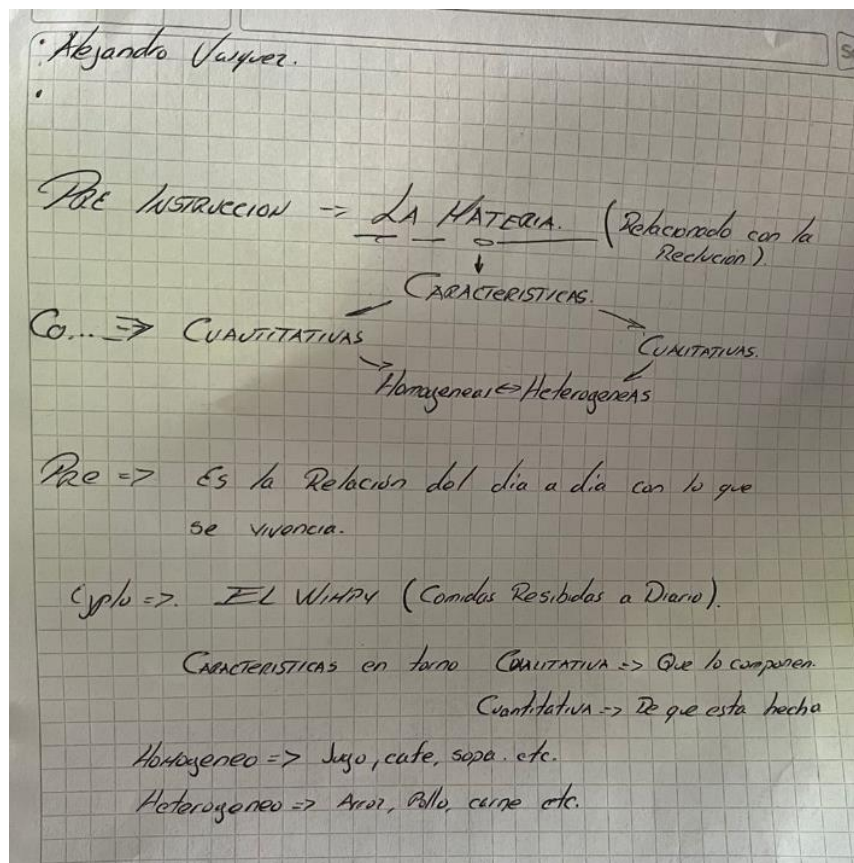 · Alejandro Vasquez.
·
PRE INSTRUCCION -> LA MATERIA. (Relacionado con la
Reclucion).
↓
CARACTERISTICAS.
Co... => CUANTITATIVAS
CUALITATIVAS.
Homogeneas <=> HeterogeneAs
Pre => Es la Relación del dia a dia con lo que
se vivencia.
=>. EL WIMPY (Comidas Resibidas a Diario).
CARACTERISTICAS en torno CUALITATIVA => Que lo componen.
CuantitativA -> De que esta hecha
HoMogeneo => Jugo, cafe, sopa. etc.
Heterogeneo => Arroz, Pollo, carne etc.